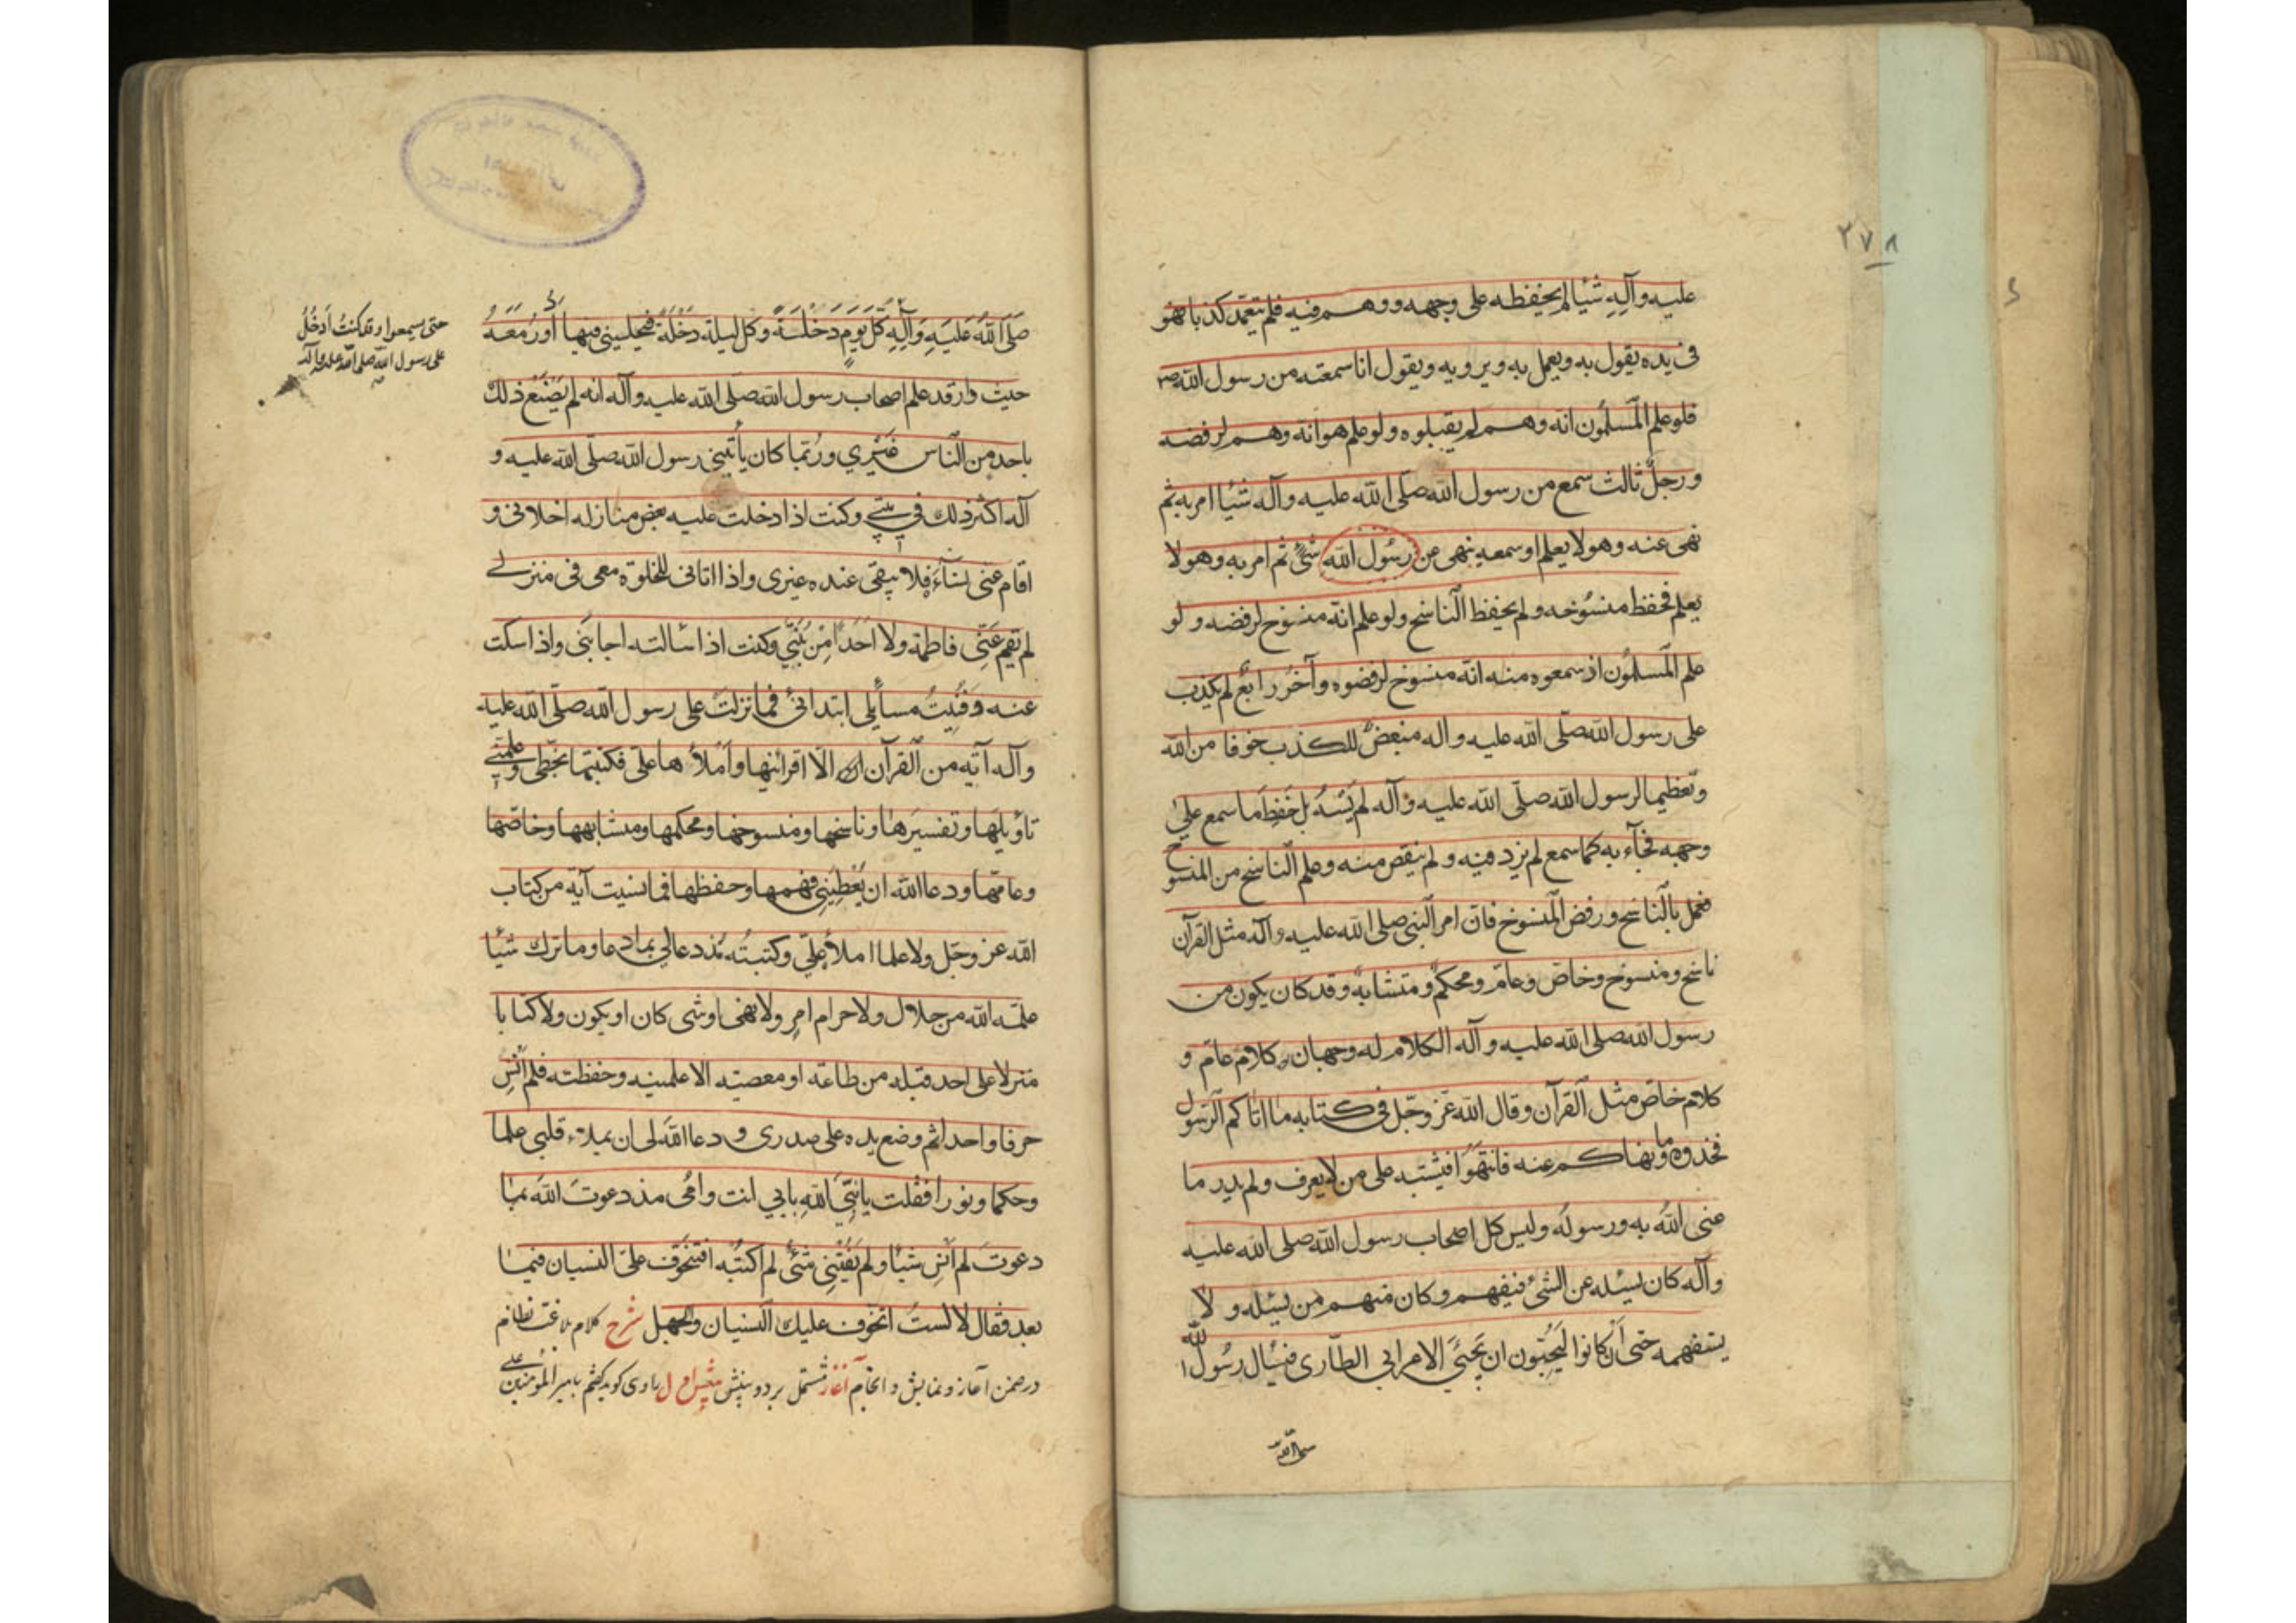 ٢٧٨
عليه وآلِهِ شيئا لم يحفظه على وجهه ووهم فيه فلم يتعمّد كذبا فهو
فى يده يقول به ويعمل به ويرويه ويقول انا سمعته من رسول الله ص
فلو علم المسلمُون انه وهم لم يقبلوه ولو علم هو انه وهم لرفضه
ورجلٌ ثالث سمع من رسول الله صلّى الله عليه وآله شيئا امر به ثم
نهى عنه وهو لا يعلم او سمعه ينهى عن رسُول الله شئ ثم امر به وهو لا
يعلم فحفظ منسُوخه ولم يحفظ الناسخ ولو علم انّه منسوخ لرفضه ولو
علم المسلمُون اذ سمعوه منه انّه منسوخ لرفضوه وآخرُ رابعٌ لم يكذب
على رسول الله صلّى الله عليه وآله مبغضٌ للكذب خوفا من الله
وتعظيما لرسول الله صلّى الله عليه وآله لم يَنْسَهُ بل حَفِظَ ما سمع على
وجهه فجآء به كما سمع لم يزد فيه ولم ينقص منه وعلم الناسخ من المنسوخ
فعمل بالناسخ ورفض المنسوخ فان امر النبى صلى الله عليه وآله مثل القرآن
ناسخ ومنسوخ وخاصّ وعامّ ومحكمٌ ومتشابهٌ وقد كان يكون من
رسول الله صلى الله عليه وآله الكلام له وجهان وكلام عامّ و
كلام خاصّ مثل القرآن وقال الله عزّ وجّل فى كتابه ما اتاكم الرسول
فخذوه وما نهاكم عنه فانتهوا فيشتبه على من لا يعرف ولم يدر ما
عنى اللهُ به ورسوله وليس كل اصحاب رسول الله صلى الله عليه
وآله كان يسئله عن الشئ فيفهم وكان منهم من يسئله ولا
يستفهمه حتى أن كانوا ليحُبّون ان يجيئَ الاعرابى الطارى فيسأل رسُول الله
صلى الله
صَلّى اللهُ عَليهِ وَآلِهِ كُلّ يَومٍ دَخْلَةً وكل ليلة دَخْلَةً فيخلينى فيها أدُورُ مَعَهُ
حتى يسمعوا وقد كنتُ اَدخُلُ
على رسول الله صلى الله عليه وآله
حيث دار قد علم اصحاب رسول الله صلّى الله عليه وآله انه لم يَصْنَع ذلك
باحد من النّاس غَيْرِي ورُبّما كان يأتينى رسول الله صلّى الله عليه و
آله اكثر ذلك فى بيتى وكنت اذا دخلت عليه بعض منازله اخلانى و
اقام عنى نساءَه فلا يبقى عنده غيرى واذا اتانى للخلوة معى فى منزلى
لم تقم عَنّى فاطمة ولا اَحَداً مِنْ بَنِيَّ وكنت اذا سألته اجابَنى واذا سكت
عنه وَفَنِيَتْ مسائلى ابتدانى فما نزلت على رسول الله صلّى الله عليه
وآله آية من القرآن الّا اقرأنيها وأملأها علىّ فكتبتها بخطّى وعلّمنى
تاويلَها وتفسيرَها وناسخها ومنسوخها ومحكمها ومتشابهها وخاصّها
وعامّها ودعا الله ان يُعْطِيَنِى فهمها وحفظها فما نسيت آية من كتاب
الله عز وجّل ولا علما املأه علىّ وكتبتُه مُنذ دعا لى بما دعا وما ترك شيئا
علمّه الله من حلال ولا حرام امرٍ ولا نهى او شى كان او يكون ولا كتابا
منزلا على احد قبله من طاعة او معصية الا علمنيه وحفظته فلم اَنسَ
حرفا واحدا ثم وضع يده على صدرى ودعا الله لى ان يملاء قلبى علما
وحكما ونورا فقلت يا نبيَّ اللهِ بابى انت وامّى منذ دعوتَ اللهَ بما
دعوتَ لم اَنسَ شيئا ولم يَفُتْنِى شئ لم اكتبْه افتتخوّف علىّ النسيان فيما
بعد فقال لا لستُ اتخوّف عليك النسيان والجهل شرح كلام بلاغت نظام
در ضمن آغاز و نمايش و انجام آغاز مشتمل بر دو بينش بينش اول راوى كويد كفتم بامير المؤمنين على